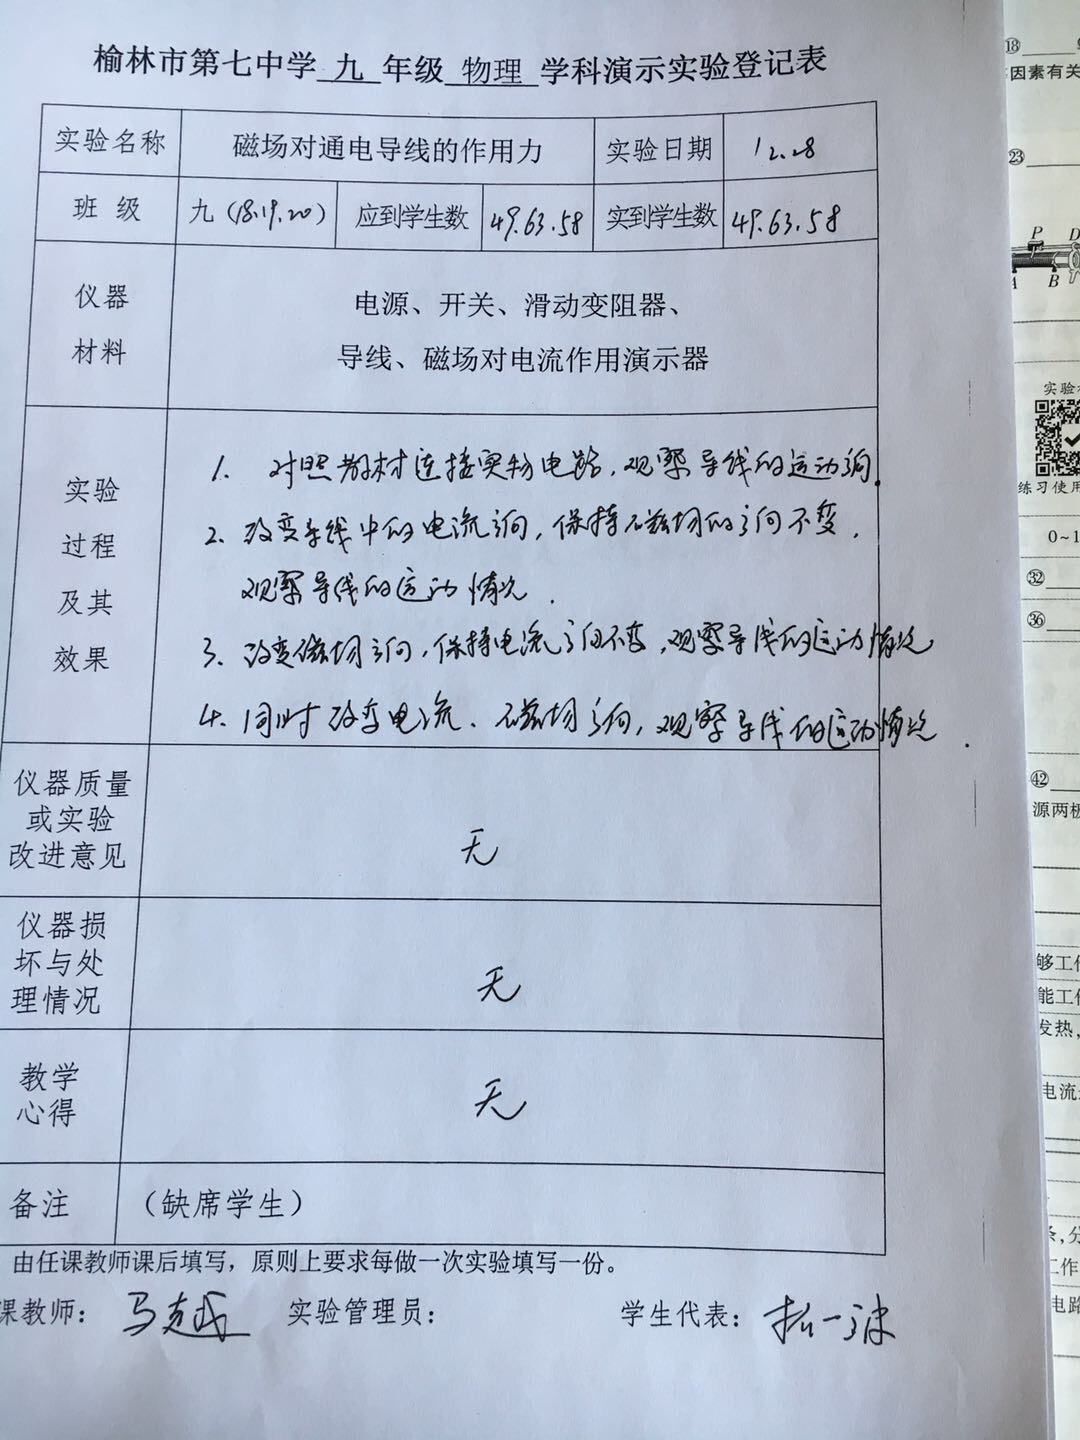 榆林市第七中学 九 年级 物理 学科演示实验登记表
实验名称 磁场对通电导线的作用力 实验日期 12.28
班 级 九(18.19.20) 应到学生数 49.63.58 实到学生数 49.63.58
仪器
材料
电源、开关、滑动变阻器、
导线、磁场对电流作用演示器
实验
过程
及其
效果
1. 对照教材连接实物电路,观察导线的运动方向.
2. 改变导线中的电流方向,保持磁场的方向不变,
观察导线的运动情况.
3. 改变磁场方向,保持电流方向不变,观察导线的运动情况
4. 同时改变电流、磁场方向,观察导线的运动情况.
仪器质量
或实验
改进意见
无
仪器损
坏与处
理情况
无
教学
心得
无
备注 (缺席学生)
由任课教师课后填写，原则上要求每做一次实验填写一份。
课教师： 实验管理员： 学生代表：
⑱
因素有关
㉓
P
D
A B
练习使用
0~1
㉜
㊱
㊷
源两极
够工作
能工作
发热,
电流
工作
电路